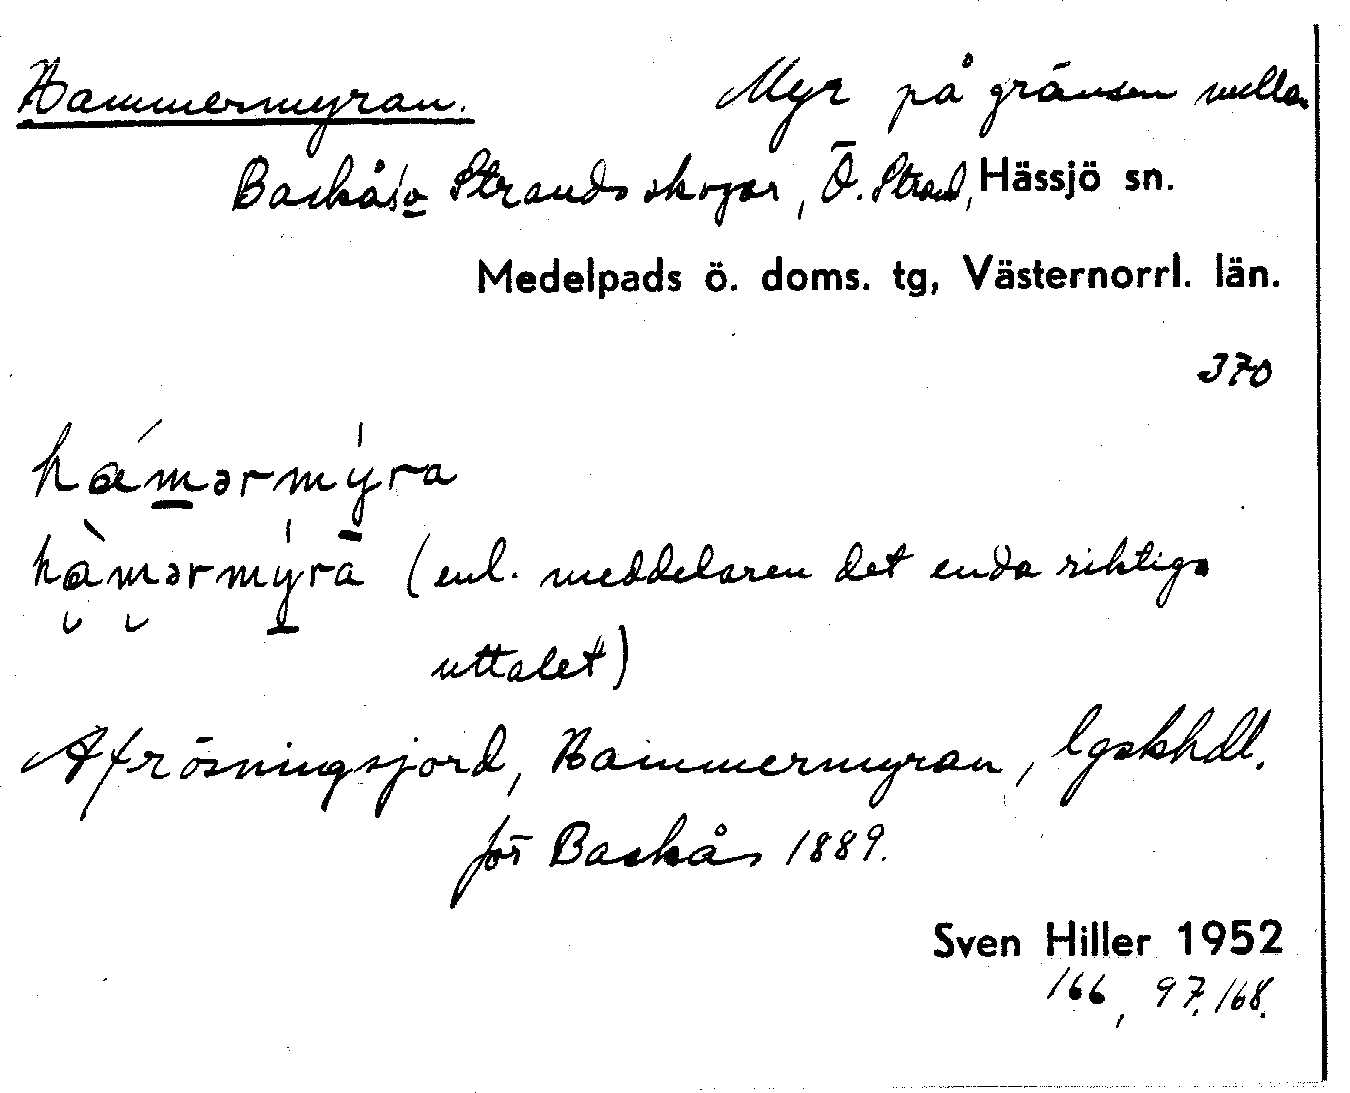 Hammermyran. Myr på gränsen mellan
Backås o Strands skogar, Ö. Strand, Hässjö sn.
Medelpads ö. doms. tg, Västernorrl. län.
370
hámərmýra
hàmərmýra (enl. meddelaren det enda riktiga
uttalet)
Afrösningsjord, Hammermyran, lgskhdl.
för Backås 1889.
Sven Hiller 1952
166, 97, 168.